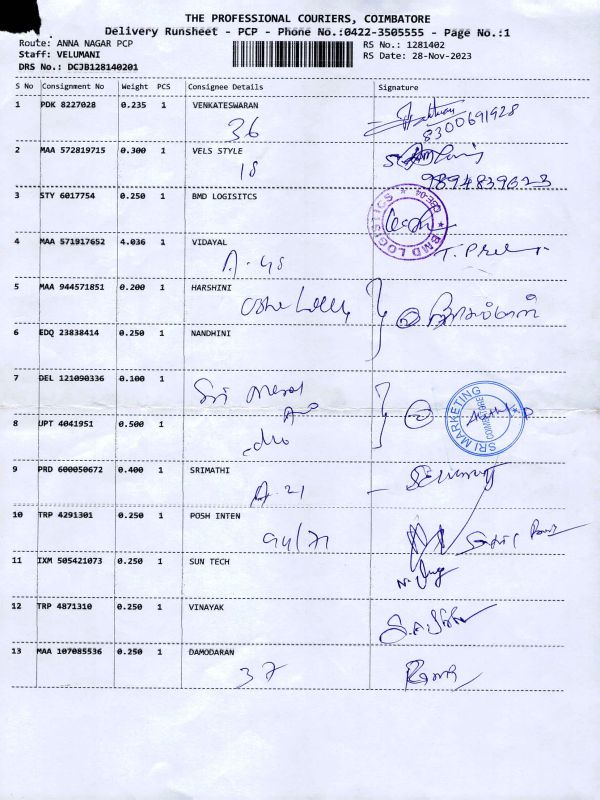 THE PROFESSIONAL COURIERS, COIMBATORE
Delivery Runsheet - PCP - Phone No.:0422-3505555 - Page No.:1
Route: ANNA NAGAR PCP
RS No.: 1281402
Staff: VELUMANI
RS Date: 28-Nov-2023
DRS No.: DCJB128140201
S No Consignment No Weight PCS Consignee Details Signature
1 PDK 8227028 0.235 1 VENKATESWARAN
36
8300691928
2 MAA 572819715 0.300 1 VELS STYLE
18
9894839023
3 STY 6017754 0.250 1 BMD LOGISITCS
BMD LOGISTICS
4 MAA 571917652 4.036 1 VIDAYAL
A-48
5 MAA 944571851 0.200 1 HARSHINI
6 EDQ 23838414 0.250 1 NANDHINI
7 DEL 121090336 0.100 1
Sri
SRI MARKETING
COIMBATORE
8 UPT 4041951 0.500 1
9 PRD 600050672 0.400 1 SRIMATHI
A-21
10 TRP 4291301 0.250 1 POSH INTEN
94/71
11 IXM 505421073 0.250 1 SUN TECH
12 TRP 4871310 0.250 1 VINAYAK
13 MAA 107085536 0.250 1 DAMODARAN
37